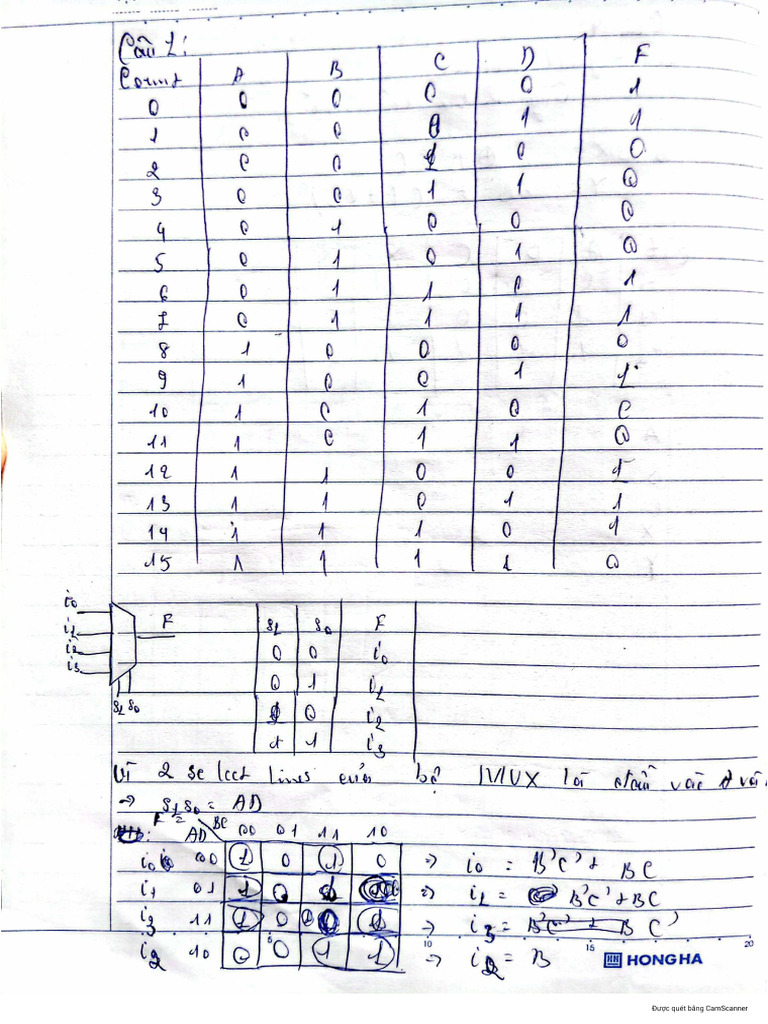 Câu 1:
Count A B C D F
0 0 0 0 0 1
1 0 0 0 1 1
2 0 0 1 0 0
3 0 0 1 1 0
4 0 1 0 0 0
5 0 1 0 1 0
6 0 1 1 0 1
7 0 1 1 1 1
8 1 0 0 0 0
9 1 0 0 1 1
10 1 0 1 0 0
11 1 0 1 1 0
12 1 1 0 0 1
13 1 1 0 1 1
14 1 1 1 0 1
15 1 1 1 1 0
i0
i1
i2
i3
F
S1 S0
S1 S0 F
0 0 i0
0 1 i1
1 0 i2
1 1 i3
Vì 2 select lines của bộ MUX là đầu vào A và
→ S1S0 = AD
F = BC
AD 00 01 11 10
i0 00 1 0 1 0 => i0 = B'C' + BC
i1 01 1 0 1 => i1 = B'C' + BC
i3 11 1 0 0 1 => i3 = C'
i2 10 0 0 1 1 => i2 = B
10 15 20
HONG HA
Được quét bằng CamScanner